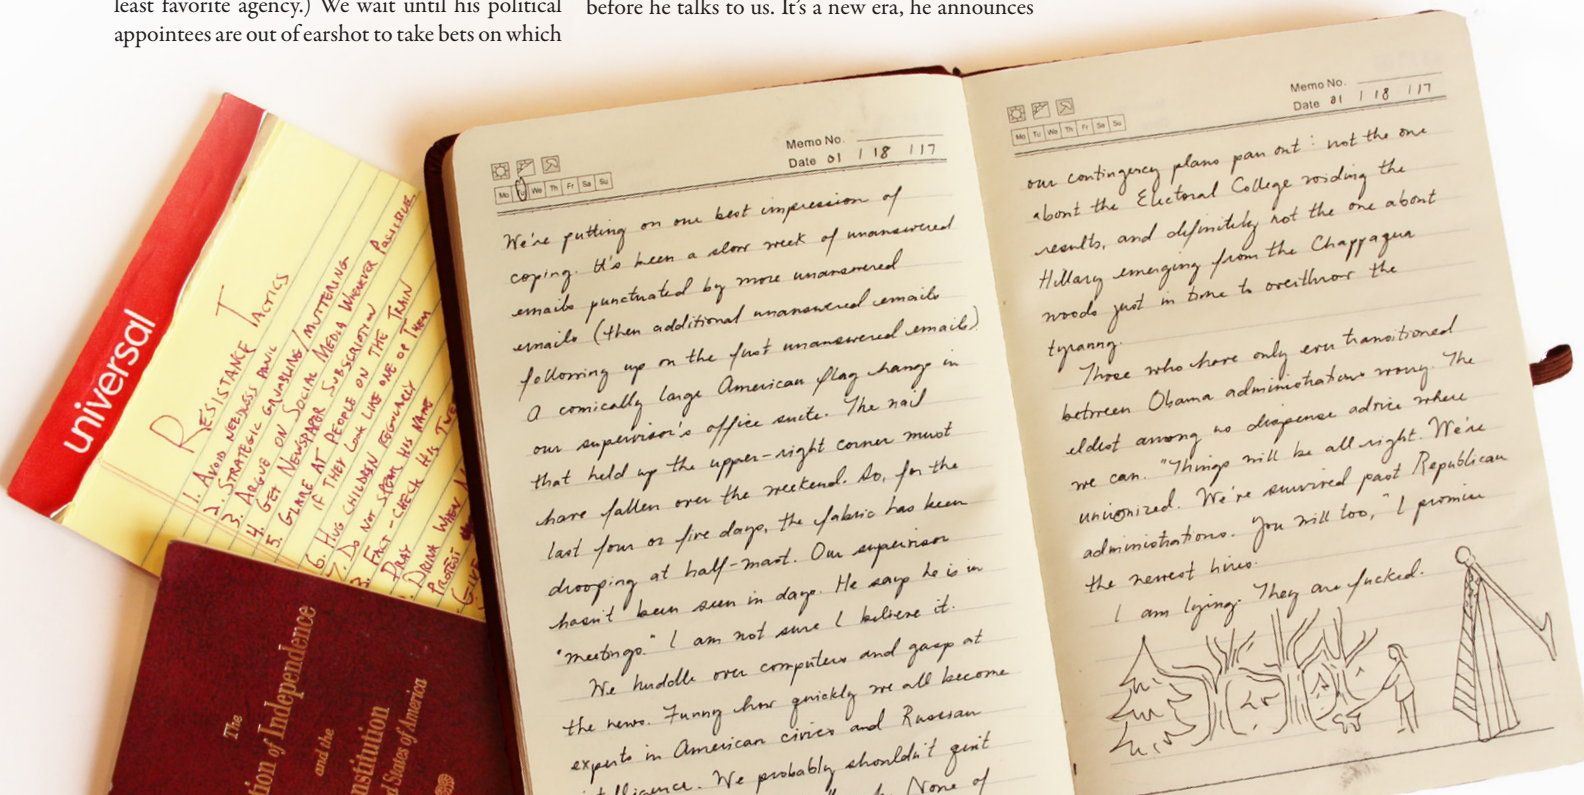 least favorite agency.) We wait until his political
appointees are out of earshot to take bets on which
before he talks to us. It's a new era, he announces
universal
RESISTANCE TACTICS
1. AVOID NEEDLESS PANIC
2. STRATEGIC GRUMBLING/MUTTERING
3. ARGUE ON SOCIAL MEDIA WHENEVER POSSIBLE
4. GET NEWSPAPER SUBSCRIPTION
5. GLARE AT PEOPLE ON THE TRAIN
IF THEY LOOK LIKE ONE OF THEM
6. HUG CHILDREN EQUALLY
7. DO NOT SPEAK HIS NAME
8. FACT-CHECK HIS
PRAY
DRINK WHEN
PROTEST
The
tion of Independence
and the
nstitution
d States of America
Memo No.
Date 01 / 18 / 17
Mo Tu We Th Fr Sa Su
We're putting on our best impression of
coping. It's been a slow week of unanswered
emails punctuated by more unanswered
emails (then additional unanswered emails
following up on the first unanswered emails).
A comically large American flag hangs in
our supervisor's office suite. The nail
that held up the upper-right corner must
have fallen over the weekend. So, for the
last four or five days, the fabric has been
drooping at half-mast. Our supervisor
hasn't been seen in days. He says he is in
"meetings." I am not sure I believe it.
We huddle over computers and gasp at
the news. Funny how quickly we all become
experts in American civics and Russian
intelligence. We probably shouldn't quit
None of
Memo No.
Date 01 / 18 / 17
Mo Tu We Th Fr Sa Su
our contingency plans pan out: not the one
about the Electoral College voiding the
results, and definitely not the one about
Hillary emerging from the Chappaqua
woods just in time to overthrow the
tyranny.
Those who have only ever transitioned
between Obama administrations worry. The
eldest among us dispense advice where
we can. "Things will be all right. We're
unionized. We've survived past Republican
administrations. You will too," I promise
the newest hires.
I am lying. They are fucked.